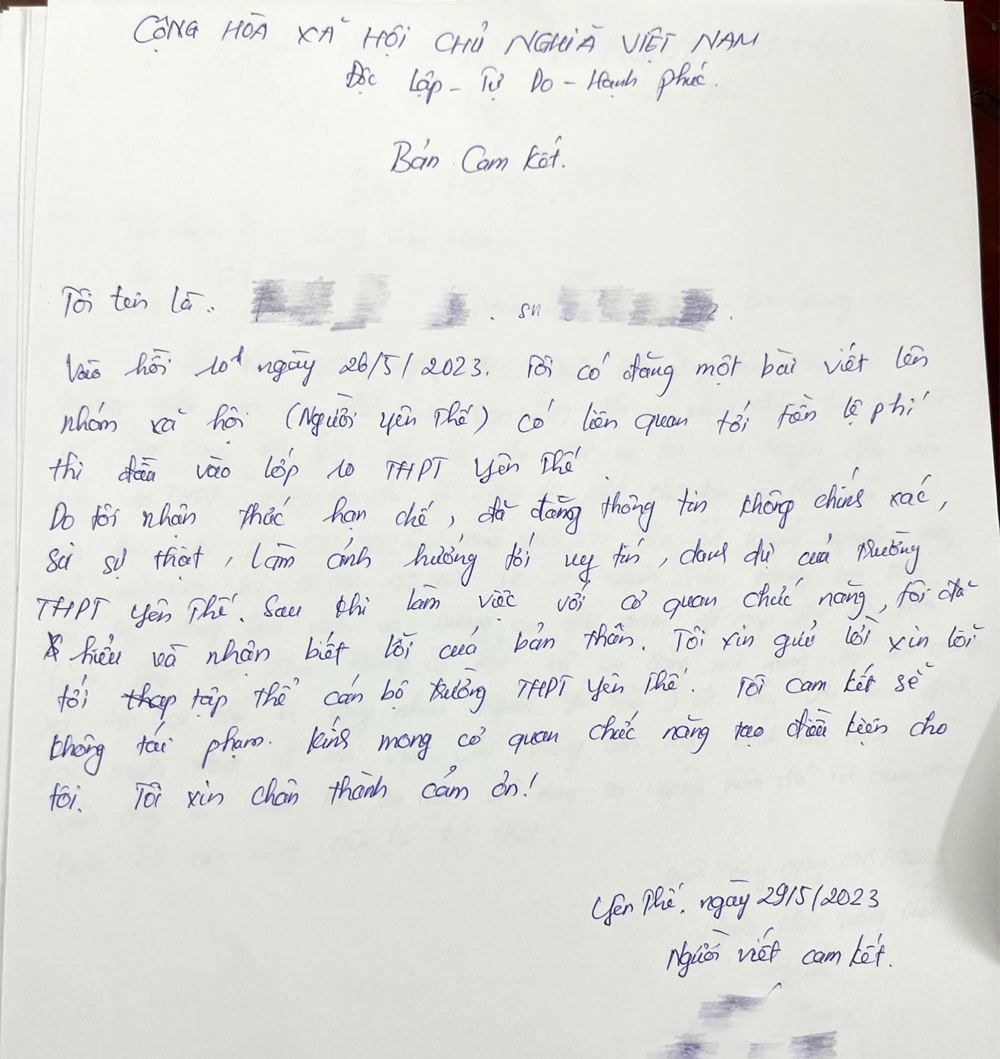 CỘNG HÒA XÃ HỘI CHỦ NGHĨA VIỆT NAM
Độc Lập - Tự Do - Hạnh phúc.
Bản Cam kết.
Tôi tên là: . sn .
Vào hồi 10h ngày 26/5/2023. Tôi có đăng một bài viết lên
nhóm xã hội (Người Yên Thế) có liên quan tới tiền lệ phí
thi đầu vào lớp 10 THPT Yên Thế.
Do tôi nhận thức hạn chế, đã đăng thông tin không chính xác,
sai sự thật, làm ảnh hưởng tới uy tín, danh dự của trường
THPT Yên Thế. Sau khi làm việc với cơ quan chức năng, tôi đã
hiểu và nhận biết lỗi của bản thân. Tôi xin gửi lời xin lỗi
tới thap tập thể cán bộ trường THPT Yên Thế. Tôi cam kết sẽ
không tái phạm. Kính mong cơ quan chức năng tạo điều kiện cho
tôi. Tôi xin chân thành cảm ơn!
Yên Thế, ngày 29/5/2023
Người viết cam kết.